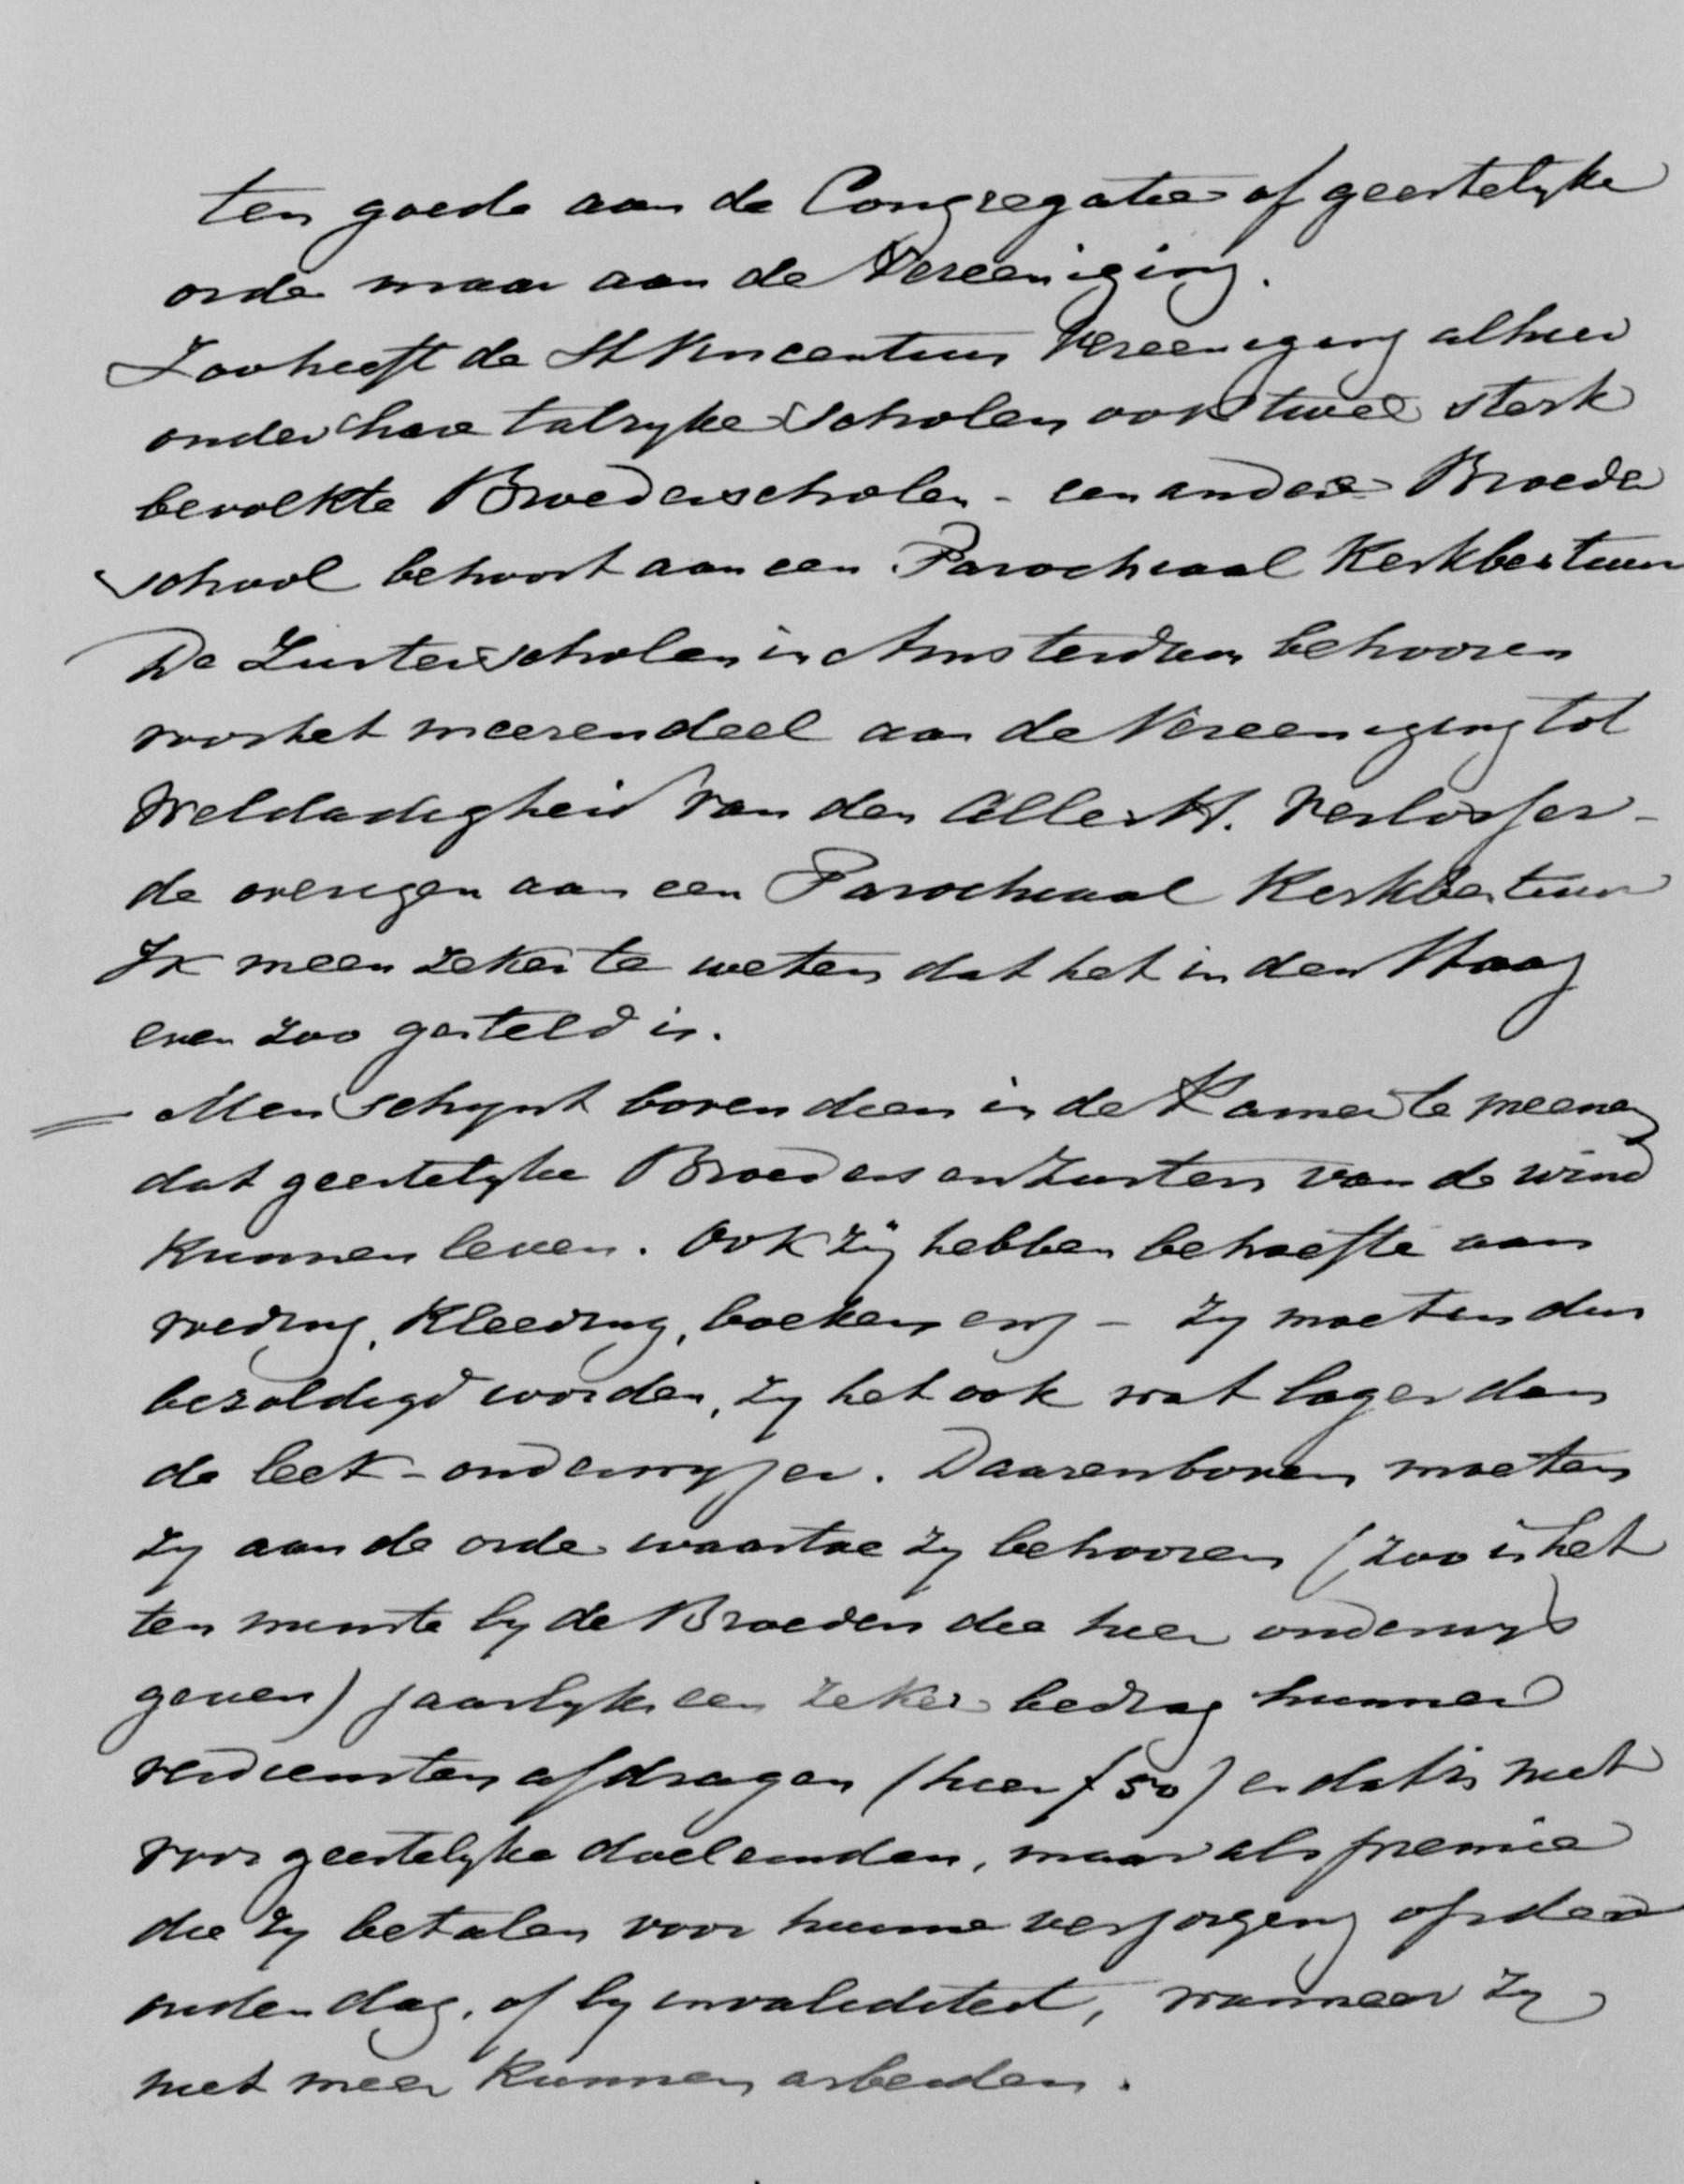 ten goede aan de Congregatie of geestelyke
orde maar aan de Vereeniging.
Zoo heeft de St Vincentius Vereeniging alhier
onder hare talryke scholen ook twee sterk
bevolkte Broederscholen - een andere Broeder
school behoort aan een Parochiaal Kerkbestuur
De Zusterscholen in Amsterdam behooren
voor het meerendeel aan de Vereeniging tot
Weldadigheid van den Allerh. Verlosser -
de overigen aan een Parochiaal Kerkbestuur
Ik meen zeker te weten dat het in den Haag
even zoo gesteld is.
= Men schynt bovendien in de Kamer te meenen
dat geestelyke Broeders en Zusters van de wind
kunnen leven. Ook zij hebben behoefte aan
voeding, kleeding, boeken enz - zy moeten dus
bezoldigd worden, zy het ook wat lager dan
de leek-onderwyzer. Daarenboven moeten
zy aan de orde waartoe zy behooren (zoo is het
ten minste by de Broeders die hier onderwys
geven) jaarlyks een zeker bedrag hunner
verdiensten afdragen (hier f 50) en dat is niet
voor geestelyke doeleinden, maar als premie
die zy betalen voor hunne verzorging op den
ouden dag, of by invaliditeit, wanneer zy
niet meer kunnen arbeiden.